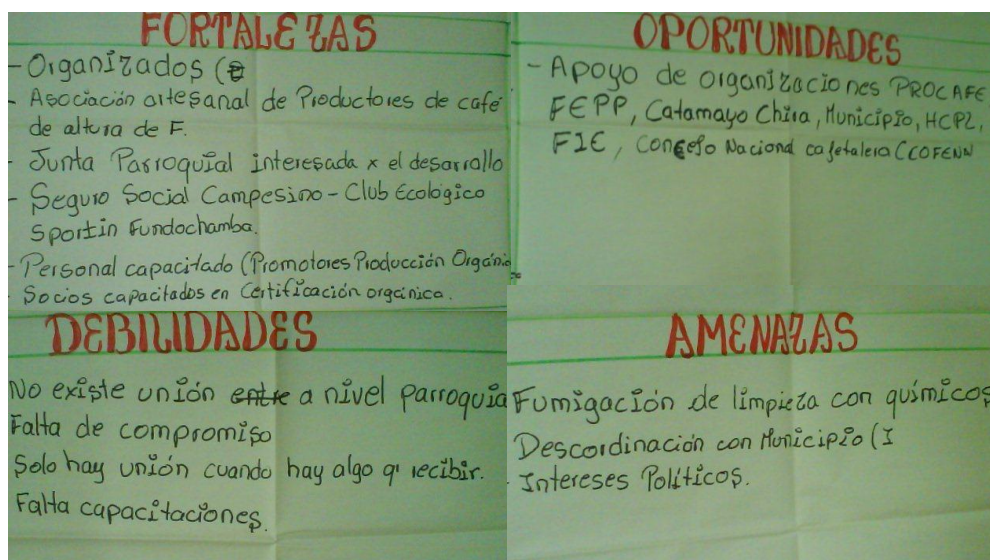 FORTALEZAS
- Organizados (
- Asociación artesanal de Productores de café
de altura de F.
- Junta Parroquial interesada x el desarrollo
- Seguro Social Campesino - Club Ecológico
Sportin Fundochamba.
- Personal capacitado (Promotores Producción Orgánic
- Socios capacitados en Certificación orgánica.
OPORTUNIDADES
- Apoyo de organizaciones PROCAFE
FEPP, Catamayo Chira, Municipio, HCPL,
FIE, Concejo Nacional cafetalero (COFENN
DEBILIDADES
No existe unión entre a nivel parroquia
Falta de compromiso
Solo hay unión cuando hay algo q' recibir.
Falta capacitaciones.
AMENAZAS
Fumigación de limpieza con químicos
Descordinación con Municipio (I
- Intereses Políticos.